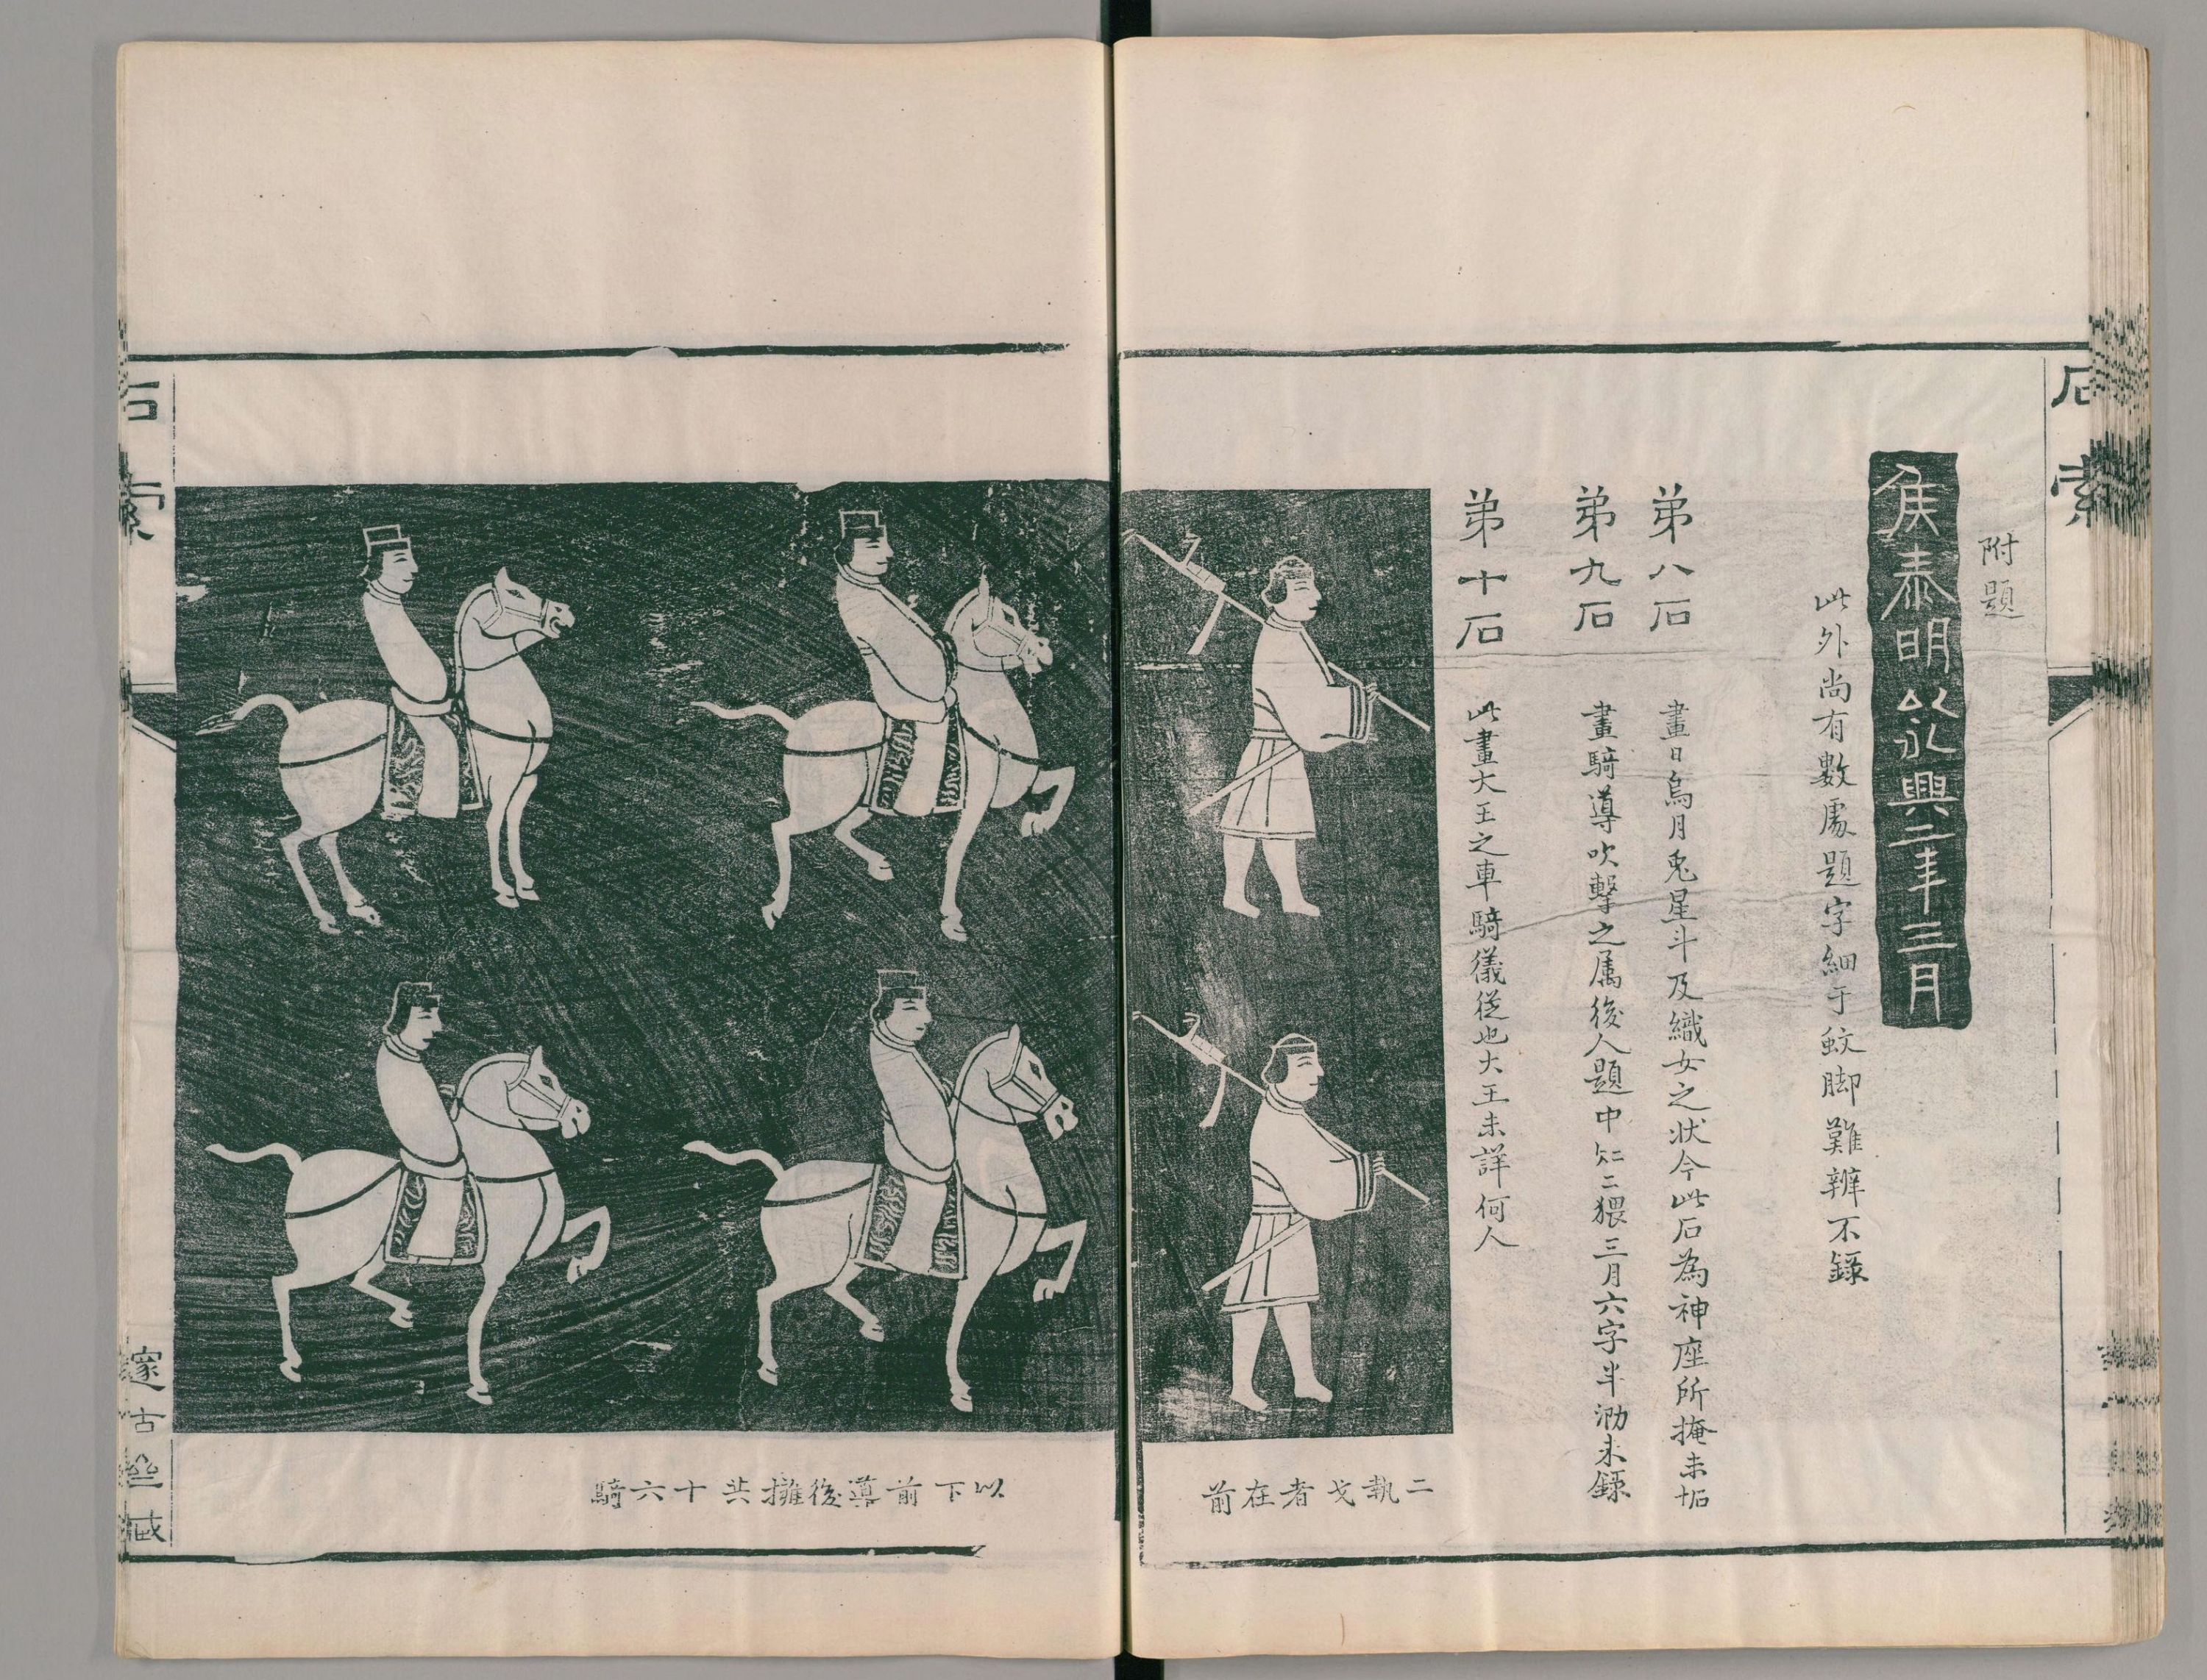 石索
附題
侯泰明以永興二年三月
此外尚有數處題字細于蚊脚難辨不錄
弟八石
畫日烏月兎星斗及織女之狀今此石為神座所掩未拓
弟九石
畫騎導吹擊之属後人題中知二猥三月六字半泐未錄
弟十石
此畫大王之車騎儀從也大王未詳何人
二執戈者在前
以下前導後擁共十六騎
石索
邃古齋藏